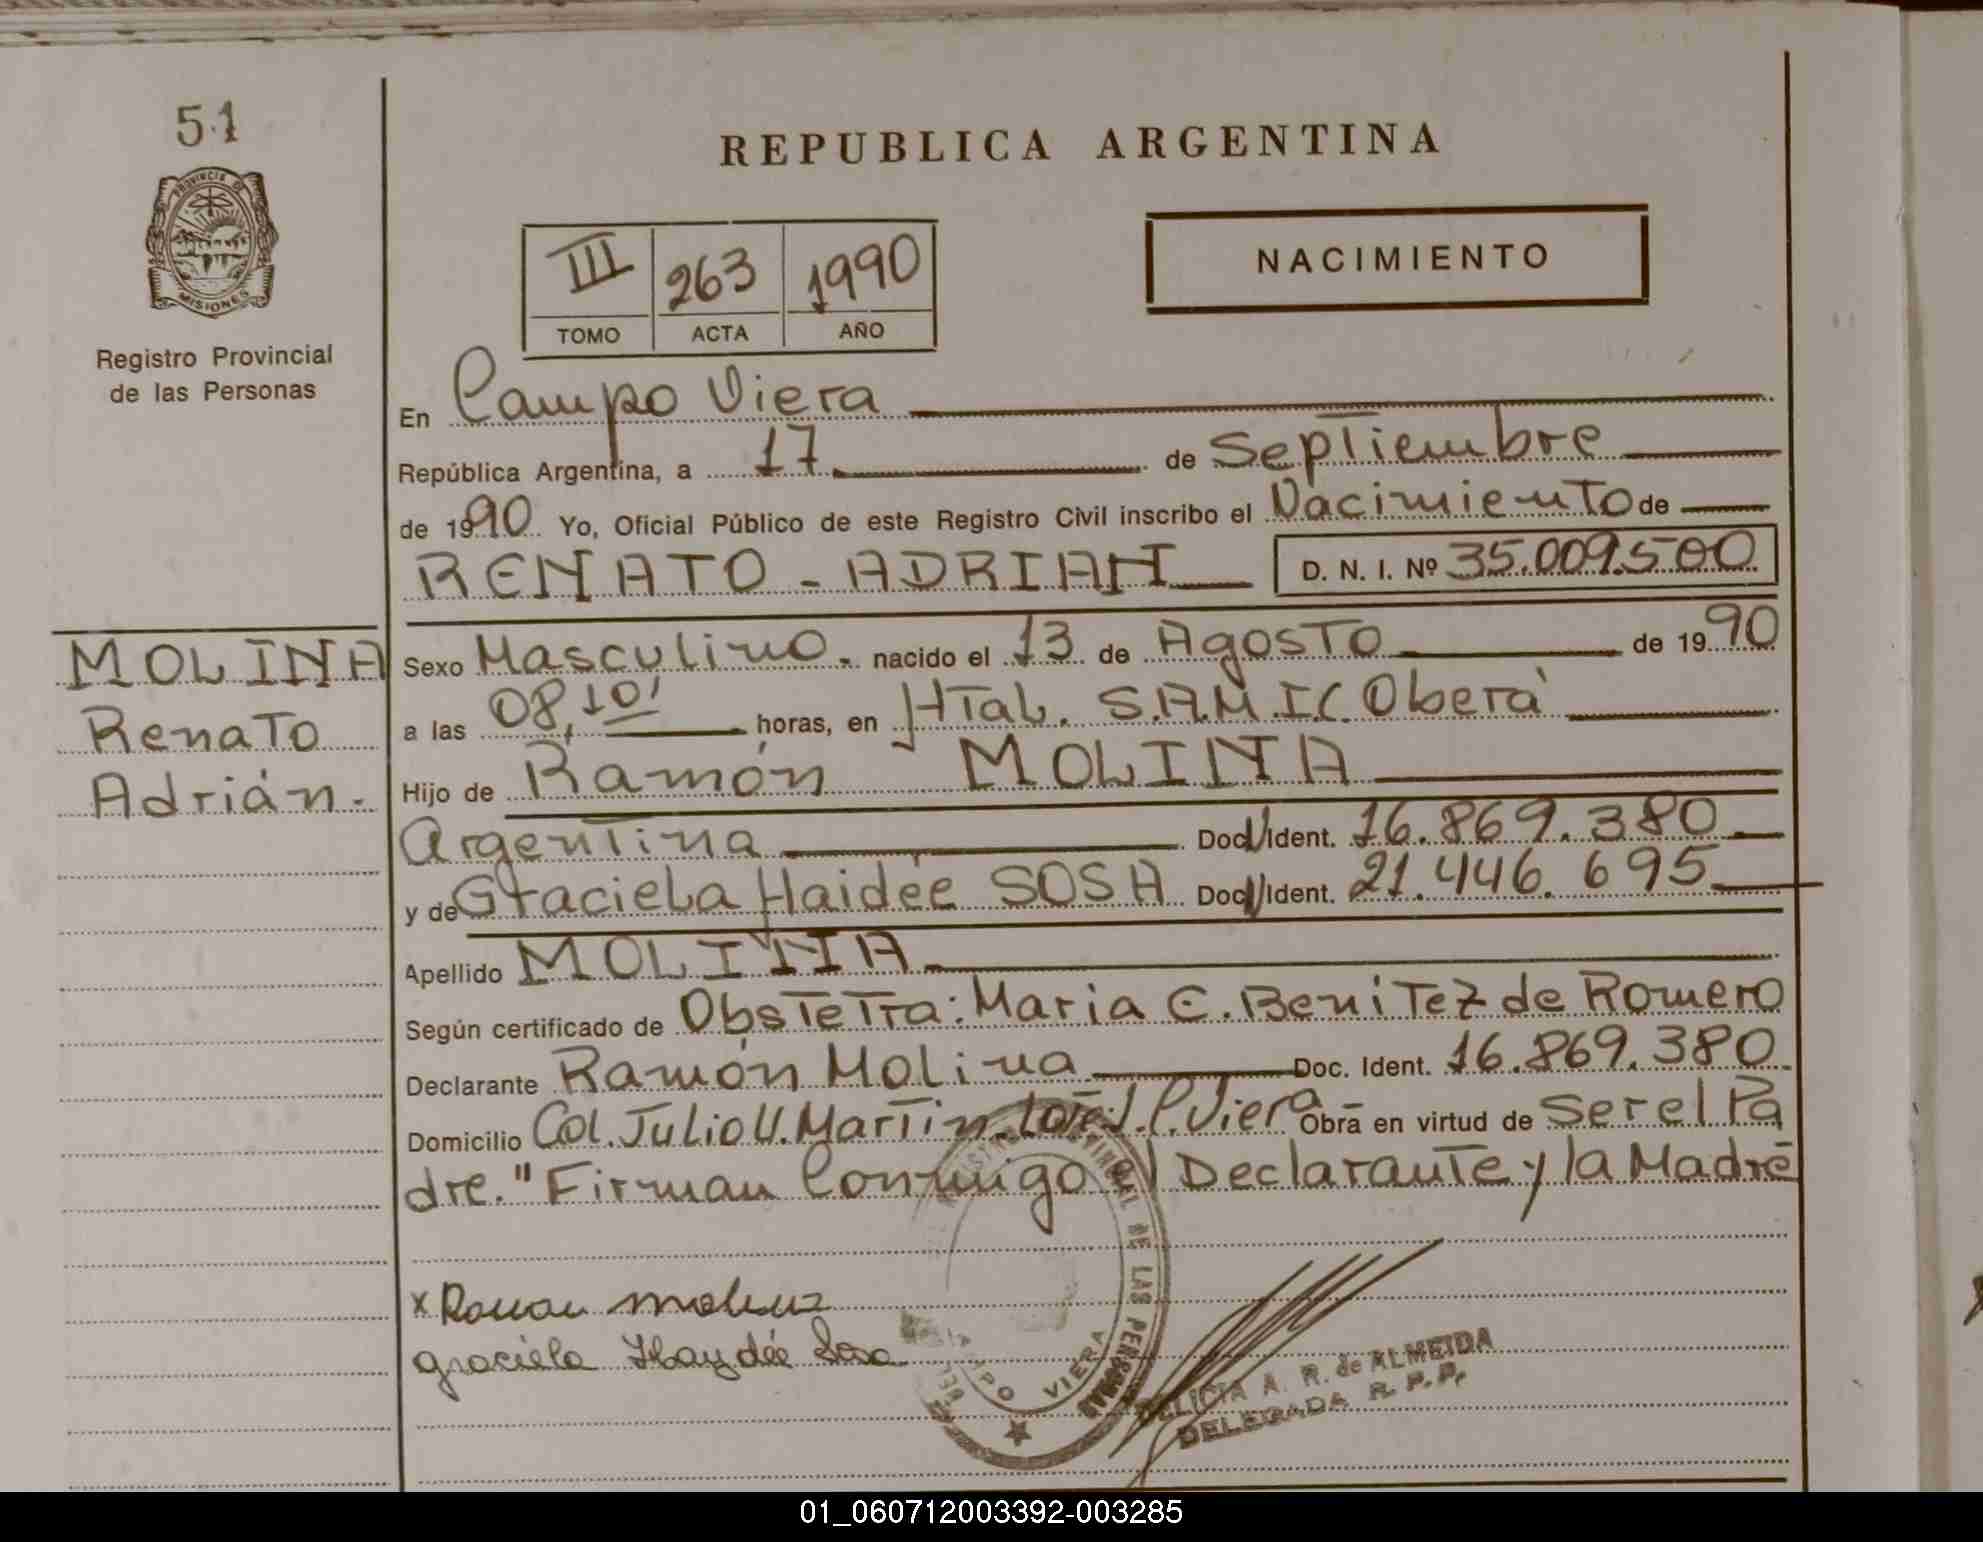 51
REPUBLICA ARGENTINA
PROVINCIA DE
MISIONES
Registro Provincial
de las Personas
III 263 1990
TOMO ACTA AÑO
NACIMIENTO
En Campo Viera
República Argentina, a 17 de Septiembre
de 1990. Yo, Oficial Público de este Registro Civil inscribo el Nacimiento de
RENATO - ADRIAN D. N. I. Nº 35.009.500
MOLINA
Renato
Adrián.
Sexo Masculino. nacido el 13 de Agosto de 1990
a las 08,10' horas, en Htal. S.A.M.I.C. Oberá
Hijo de Ramón MOLINA
Argentina Doc. Ident. 16.869.380
y de Graciela Haidée SOSA Doc. Ident. 21.446.695
Apellido MOLINA
Según certificado de Obstetra: Maria E. Benitez de Romero
Declarante Ramón Molina Doc. Ident. 16.869.380
Domicilio Col. Julio U. Martin. Lote: C. Viera Obra en virtud de Ser el Pa
dre." Firman Conmigo el Declarante y la Madre
x Ramon Molina
Graciela Haydée Sosa
PROVINCIAL DE LAS PERSONAS
CAMPO VIERA
FELICIA A. R. de ALMEIDA
DELEGADA R. P. P.
01_060712003392-003285